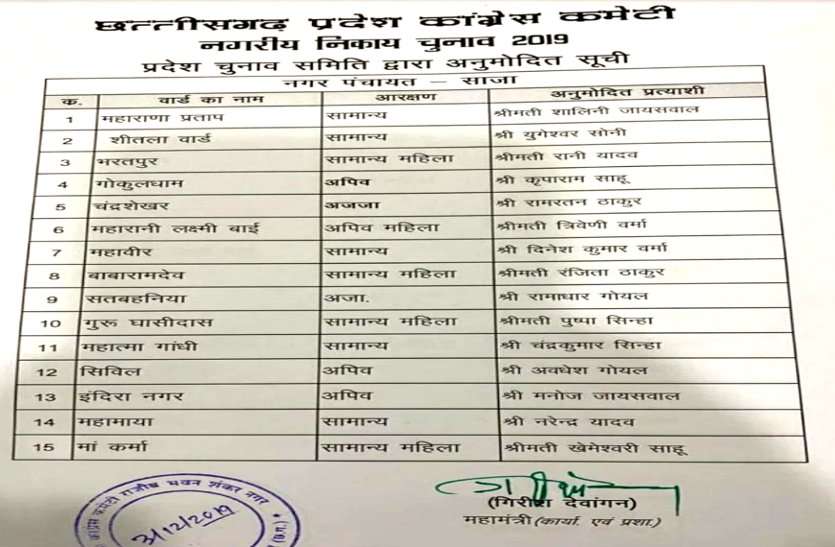 छत्तीसगढ़ प्रदेश कांग्रेस कमेटी
नगरीय निकाय चुनाव 2019
प्रदेश चुनाव समिति द्वारा अनुमोदित सूची
नगर पंचायत – साजा
क. वार्ड का नाम आरक्षण अनुमोदित प्रत्याशी
1 महाराणा प्रताप सामान्य श्रीमती शालिनी जायसवाल
2 शीतला वार्ड सामान्य श्री युगेश्वर सोनी
3 भरतपुर सामान्य महिला श्रीमती रानी यादव
4 गोकुलधाम अपिव श्री कृपाराम साहू
5 चंद्रशेखर अजजा श्री रामरतन ठाकुर
6 महारानी लक्ष्मी बाई अपिव महिला श्रीमती त्रिवेणी वर्मा
7 महावीर सामान्य श्री दिनेश कुमार वर्मा
8 बाबारामदेव सामान्य महिला श्रीमती रंजिता ठाकुर
9 सतबहनिया अजा. श्री रामाधार गोयल
10 गुरू घासीदास सामान्य महिला श्रीमती पुष्पा सिन्हा
11 महात्मा गांधी सामान्य श्री चंद्रकुमार सिन्हा
12 सिविल अपिव श्री अवधेश गोयल
13 इंदिरा नगर अपिव श्री मनोज जायसवाल
14 महामाया सामान्य श्री नरेन्द्र यादव
15 मां कर्मा सामान्य महिला श्रीमती खेमेश्वरी साहू
कांग्रेस कमेटी राजीव भवन शंकर नगर
3/12/2019
(गिरीश देवांगन)
महामंत्री (कार्या. एवं प्रशा.)